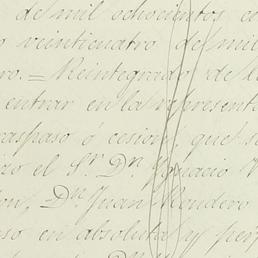 de mil ochocientos c
o veinticuatro de mil
ro. = Reintegrado de l
entrar en la represent
raspaso ó cesion, que s
izo el Sr. Dn. Ignacio V
on, Dn. Juan Mendero
uso en absoluta y per